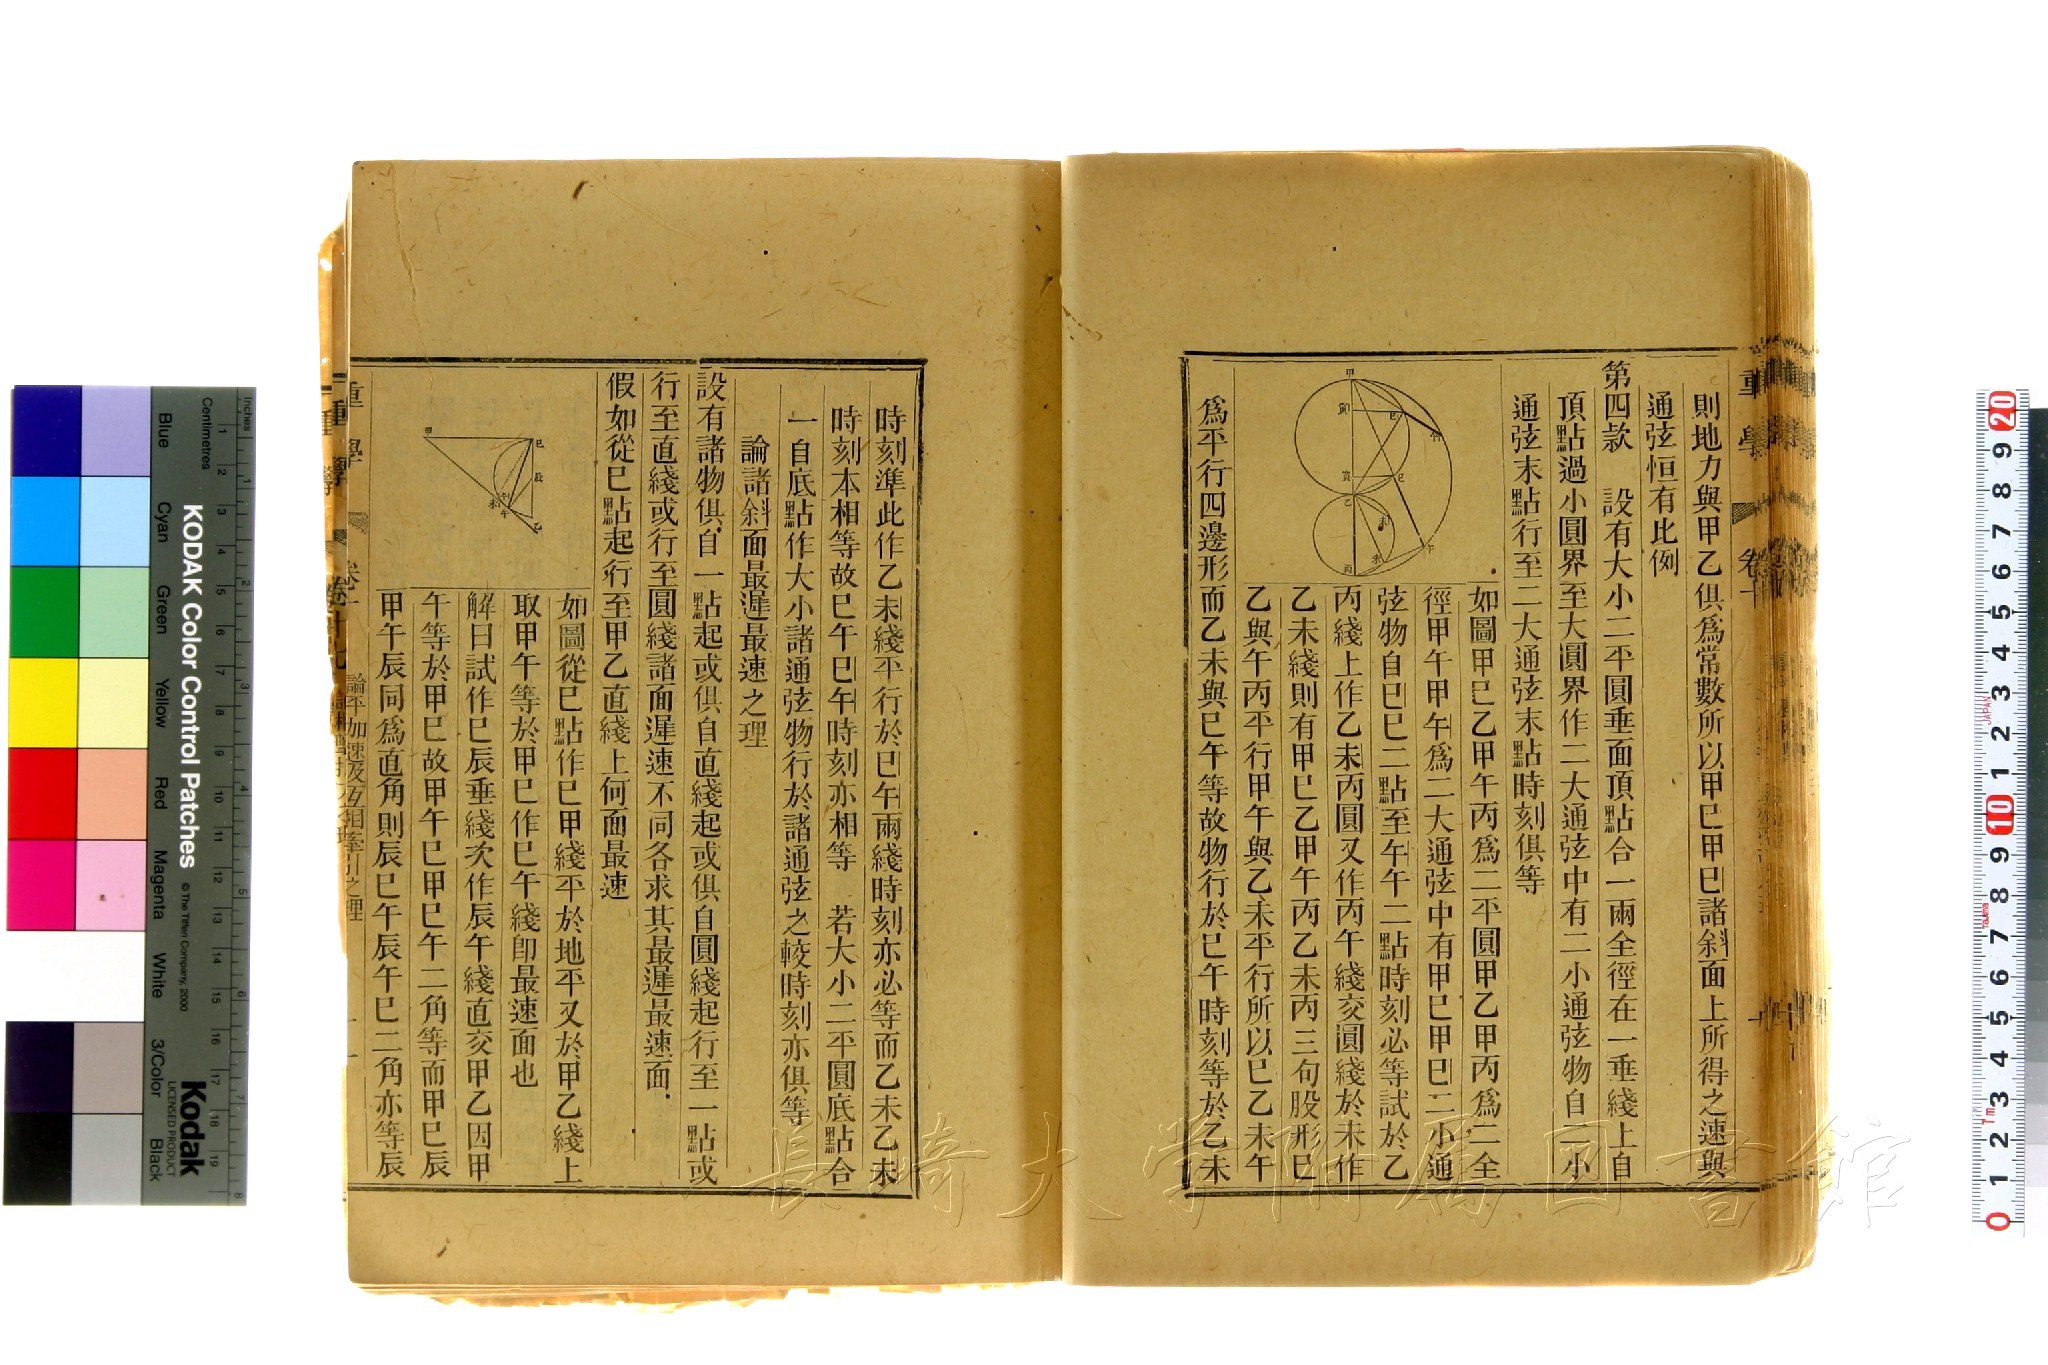 則地力與甲乙俱爲常數所以甲巳甲巳諸斜面上所得之速與
通弦恒有比例
第四款　設有大小二平圓垂面頂點合一兩全徑在一垂綫上自
頂點過小圓界至大圓界作二大通弦中有二小通弦物自二小
通弦末點行至二大通弦末點時刻俱等
如圖甲巳乙甲午丙爲二平圓甲乙甲丙爲二全
徑甲午甲午爲二大通弦中有甲巳甲巳二小通
弦物自巳巳二點至午午二點時刻必等試於乙
丙綫上作乙未丙圓又作丙午綫交圓綫於未作
乙未綫則有甲巳乙甲午丙乙未丙三句股形巳
乙與午丙平行甲午與乙未平行所以巳乙未午
爲平行四邊形而乙未與巳午等故物行於巳午時刻等於乙未
時刻準此作乙未綫平行於巳午兩綫時刻亦必等而乙未乙未
時刻本相等故巳午巳午時刻亦相等　若大小二平圓底點合
一自底點作大小諸通弦物行於諸通弦之較時刻亦俱等
論諸斜面最遲最速之理
設有諸物俱自一點起或俱自直綫起或俱自圓綫起行至一點或
行至直綫或行至圓綫諸面遲速不同各求其最遲最速面
假如從巳點起行至甲乙直綫上何面最速
如圖從巳點作巳甲綫平於地平又於甲乙綫上
取甲午等於甲巳作巳午綫卽最速面也
解曰試作巳辰垂綫次作辰午綫直交甲乙因甲
午等於甲巳故甲午巳甲巳午二角等而甲巳辰
甲午辰同爲直角則辰巳午辰午巳二角亦等辰
重學
論平加速及互相牽引之理
長崎大学附属図書館
KODAK Color Control Patches
© The Tiffen Company, 2000
Kodak
LICENSED PRODUCT
Inches
Centimetres
Blue
Cyan
Green
Yellow
Red
Magenta
White
3/Color
Black